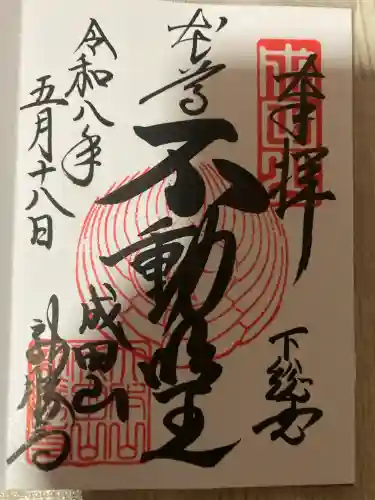 奉拝
下総国
本尊
不動明王
成田山
新勝寺
令和八年
五月十八日